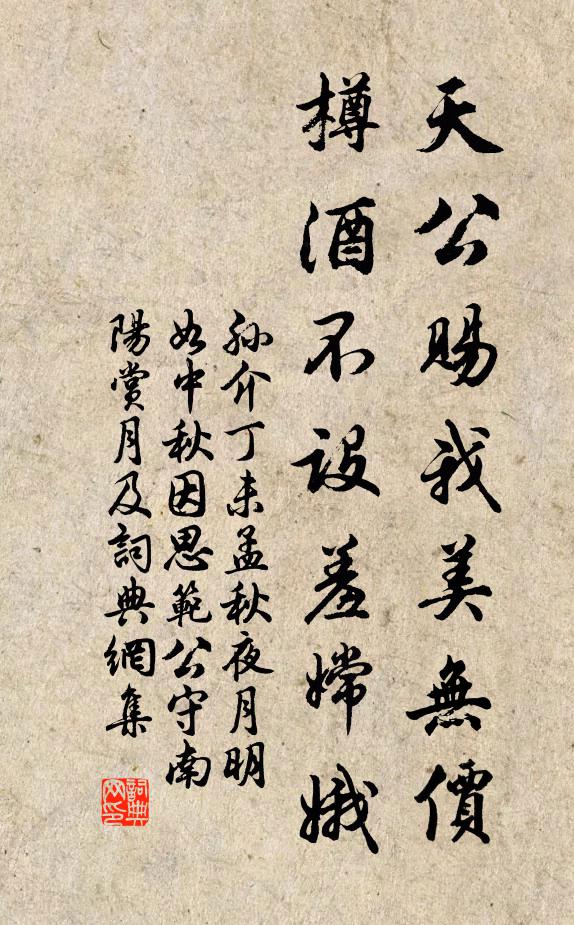 天公賜我美無價
樽酒不設羞嫦娥
孫介丁未孟秋夜月明
如中秋因思範公守南
陽賞月及詞典網集
詞典網印